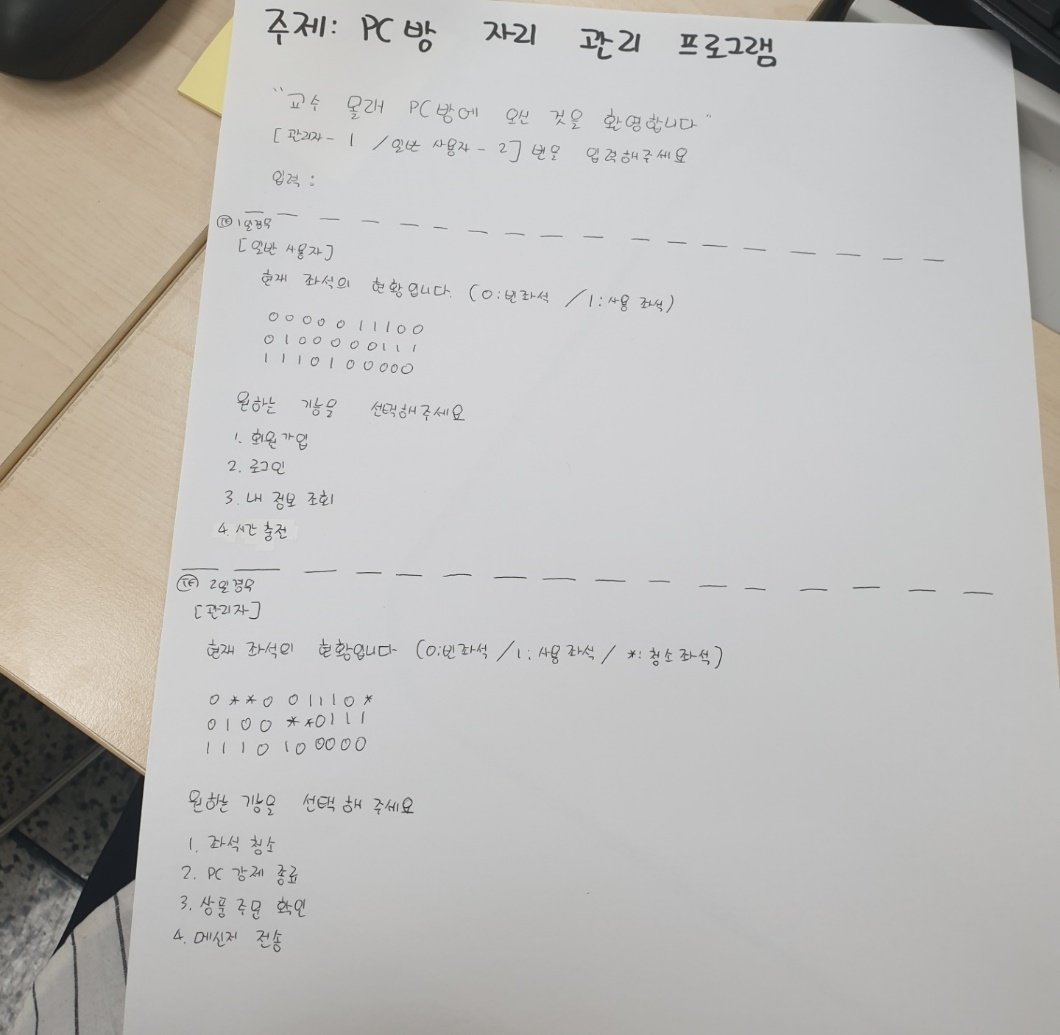 주제: PC방 자리 관리 프로그램
"교수 몰래 PC방에 오신 것을 환영합니다"
[관리자 - 1 / 일반 사용자 - 2] 번호 입력해주세요
입력 :
1일경우
[일반 사용자]
현재 좌석의 현황입니다. (0:빈좌석 / 1:사용 좌석)
0 0 0 0 0 1 1 1 0 0
0 1 0 0 0 0 0 1 1 1
1 1 1 0 1 0 0 0 0 0
원하는 기능을 선택해주세요
1. 회원가입
2. 로그인
3. 내 정보 조회
4. 시간 충전
2일 경우
[관리자]
현재 좌석의 현황입니다 (0:빈좌석 / 1:사용 좌석 / *:청소 좌석)
0 * * 0 0 1 1 1 0 *
0 1 0 0 * * 0 1 1 1
1 1 1 0 1 0 0 0 0 0
원하는 기능을 선택해 주세요
1. 좌석 청소
2. PC 강제 종료
3. 상품 주문 확인
4. 메신저 전송